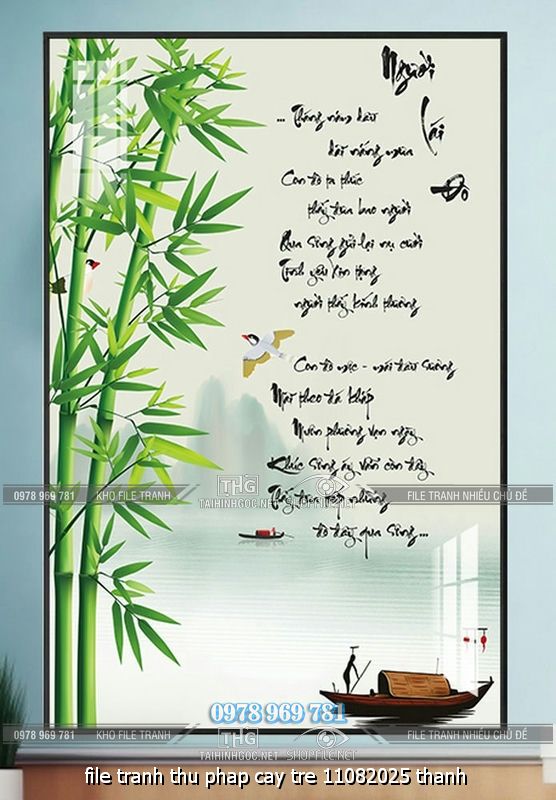 Người
Lái
Đò
... Tháng năm dầu
dãi nắng mưa
Con đò tri thức
thầy đưa bao người
Qua sông gửi lại nụ cười
Tình yêu xin tặng
người thầy kính thương
Con đò mộc - mái đầu sương
Mãi theo
Muôn phương vạn ngày
Khúc sông ấy vẫn còn đây
Thầy đưa tiếp những
đò đầy qua sông ...
0978 969 781
KHO FILE TRANH
THG
TAIHINHGOC.NET
SHOPFILE.NET
FILE TRANH NHIỀU CHỦ ĐỀ
0978 969 781
0978 969 781
KHO FILE TRANH
THG
TAIHINHGOC.NET
SHOPFILE.NET
FILE TRANH NHIỀU CHỦ ĐỀ
file tranh thu phap cay tre 11082025 thanh